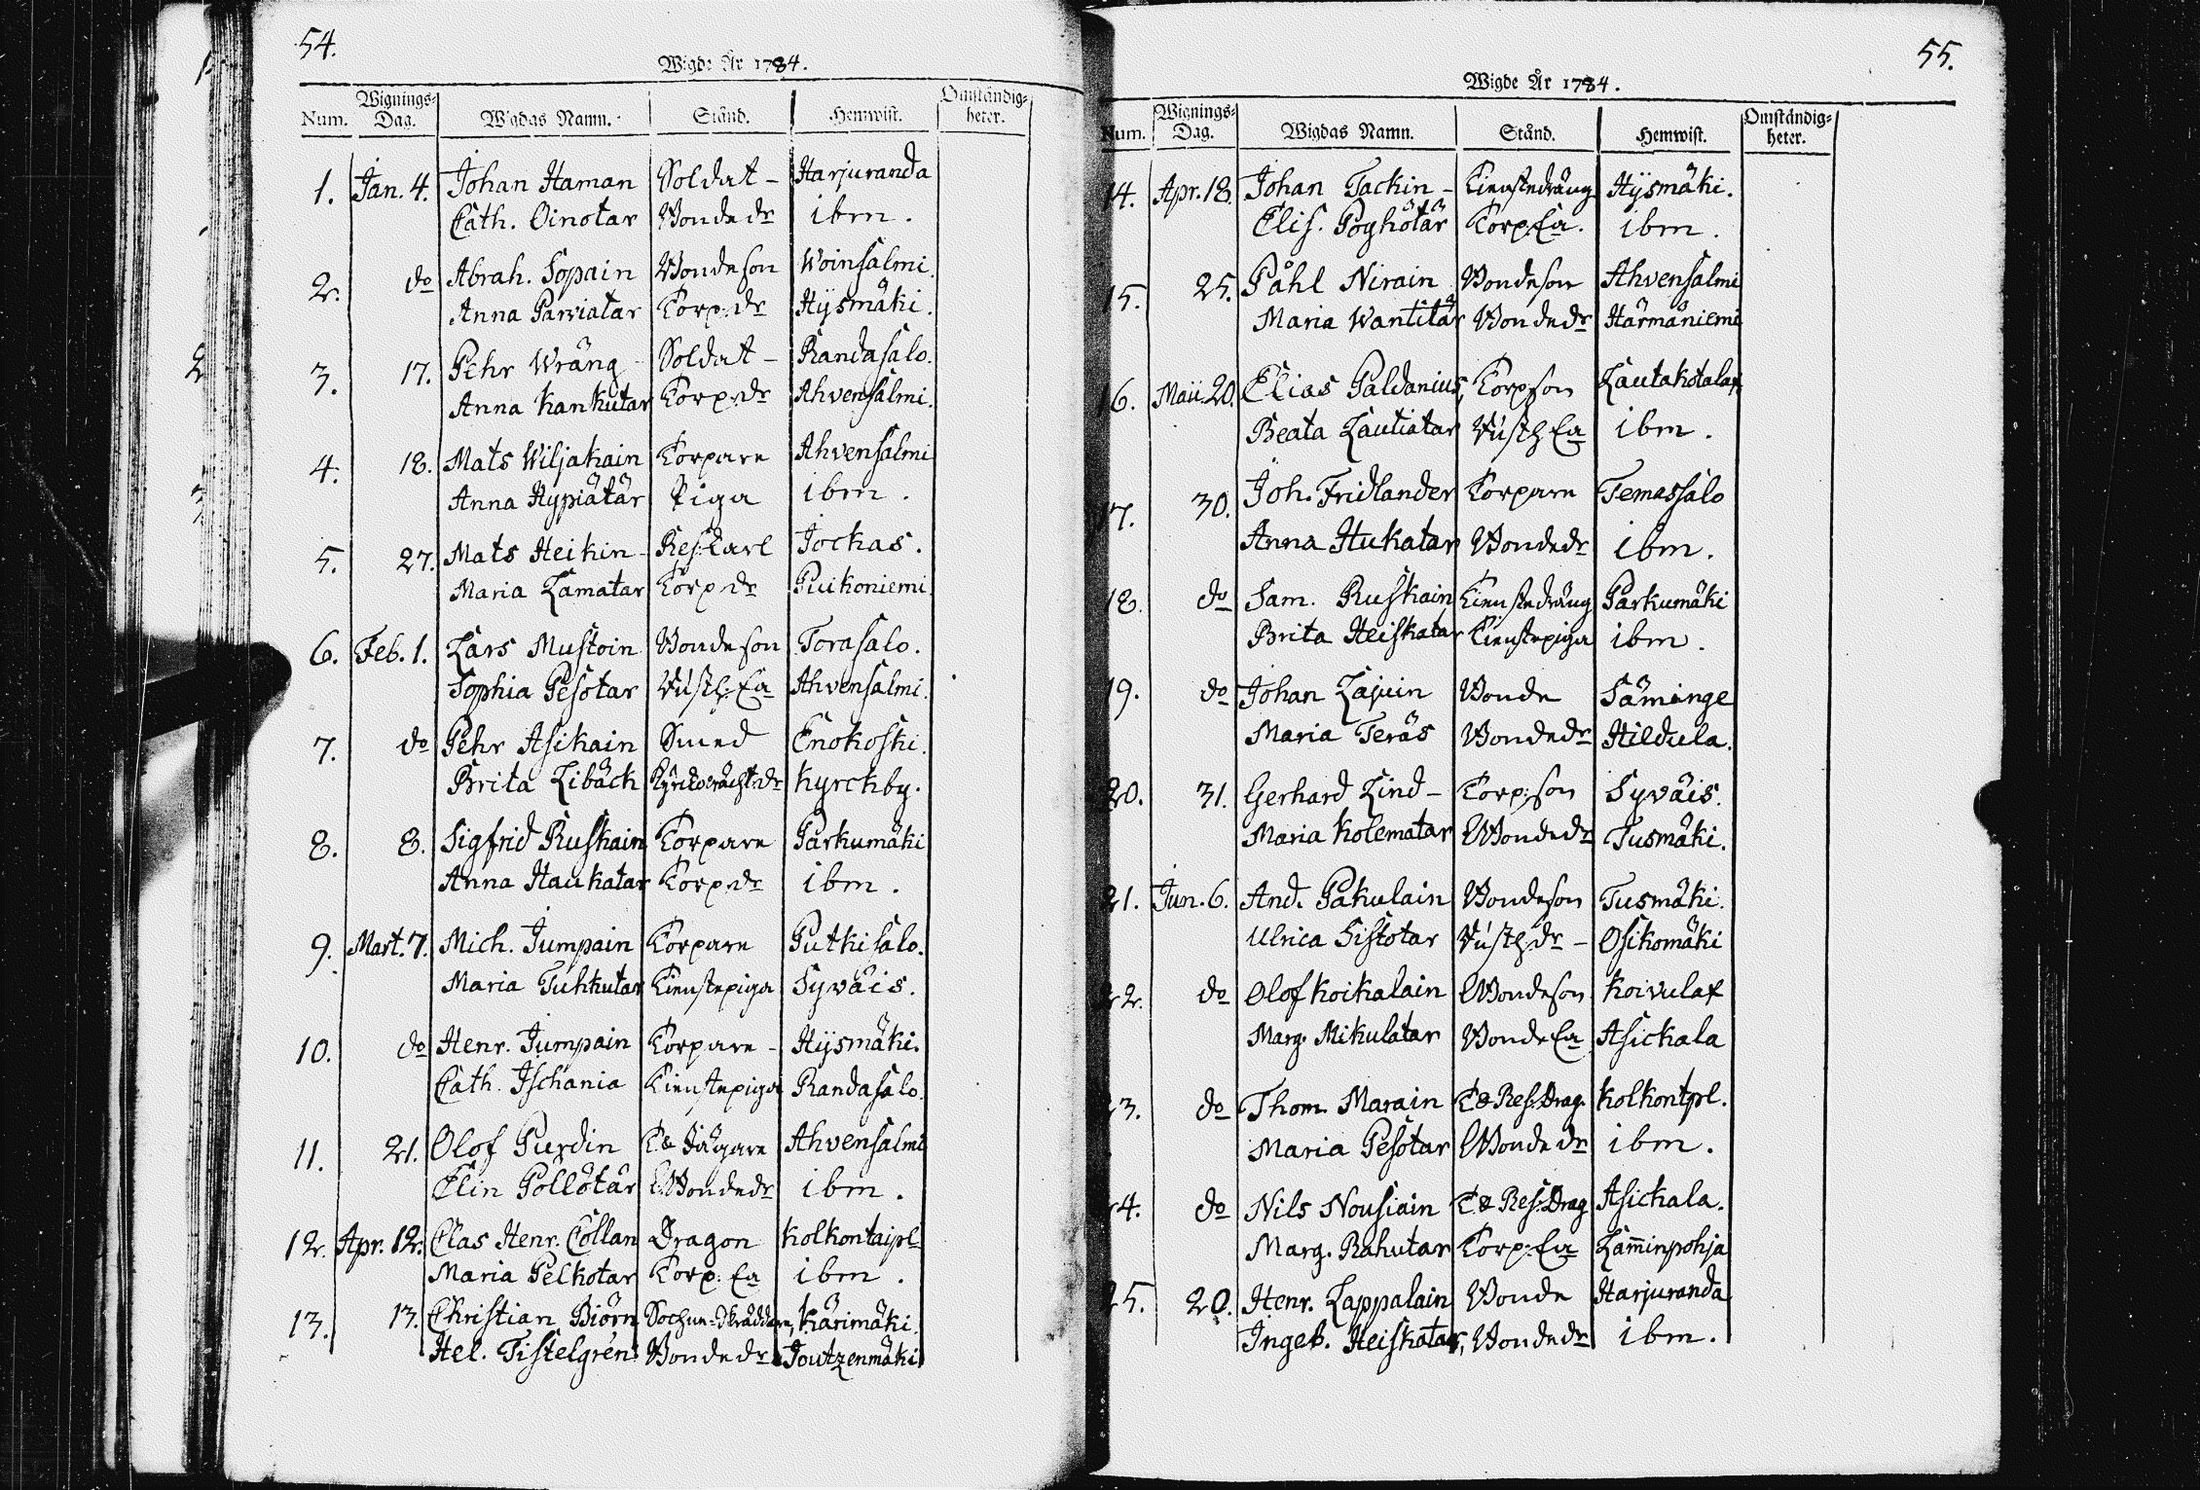 54.
Wigde År 1784.
Num. Wignings-Dag. Wigdas Namn. Stånd. Hemwist. Omständig-heter.
1. Jan. 4. Johan Haman Soldat - Harjuranda
Cath. Oinotar Bondedr ibm.
2. do Abrah. Sopain Bondeson Woinsalmi.
Anna Parviatar Torp:dr Hysmäki.
3. 17. Pehr Wräng Soldat - Randasalo.
Anna Kankutar Torp:dr Ahvensalmi.
4. 18. Mats Wiljakain Torpare Ahvensalmi
Anna Hypiätär Piga ibm.
5. 27. Mats Heikin - Res:Karl Jockas.
Maria Lamatar Torp:dr Puikoniemi
6. Feb. 1. Lars Mustoin Bondeson Torasalo.
Sophia Pesotar Ahvensalmi.
7. do Pehr Asikain Smed Enokoski.
Brita Libäck Kyrckby.
8. 8. Sigfrid Ruskain Torpare Parkumäki
Anna Haukatar Torp:dr ibm.
9. Mart. 7. Mich. Jumpain Torpare Putkisalo.
Maria Tuhkutar Tienstepiga Syväis.
10. do Henr. Jumpain Torpare - Hysmäki.
Cath. Ischania Tienstepiga Randasalo.
11. 21. Olof Purdin Ahvensalmi
Elin Pöllötär Bondedr ibm.
12. Apr. 12. Clas Henr. Collan Dragon Kolkontaipl
Maria Pelkotar Torp: Ea ibm.
13. 13. Christian Biörn Sochne-Skräddare, Kärimäki.
Hel. Tistelgrén Bondedr Joutzenmäki
55.
Wigde År 1784.
Num. Wignings-Dag. Wigdas Namn. Stånd. Hemwist. Omständig-heter.
14. Apr. 18. Johan Tackin - Tienstedräng Hysmäki.
Elis. Pöghötär Torp:Ea. ibm.
15. 25. Påhl Nirain Bondeson Ahvensalmi
Maria Wantitär Bondedr Härmäniemi
16. Maii 20. Elias Paldanius, Torpson Lautakotalax.
Beata Lautiatar ibm.
17. 30. Joh. Fridlander Torpare Temassalo
Anna Hukatar Bondedr ibm.
18. do Sam. Ruskain Tienstedräng Parkumäki
Brita Heiskatar Tienstepiga ibm.
19. do Johan Lajuin Bonde Säminge
Maria Teräs Bondedr Hildula.
20. 31. Gerhard Lind - Torp:son Syväis.
Maria Kolematar Bondedr Tusmäki.
21. Jun. 6. And. Pakulain Bondeson Tusmäki.
Ulrica Sistotar Osikomäki
22. do Olof Koikalain Bondeson Koivulax
Marg. Mikulatar Bonde Ea Asickala
23. do Thom. Marain Res:Drag. Kolkontpl.
Maria Pesotar Bondedr ibm.
24. do Nils Nousiain Res:Drag Asickala.
Marg. Rahutar Torp:Ea Lam̄inpohja
25. 20. Henr. Lappalain Bonde Harjuranda
Ingeb. Heiskatar, Bondedr ibm.